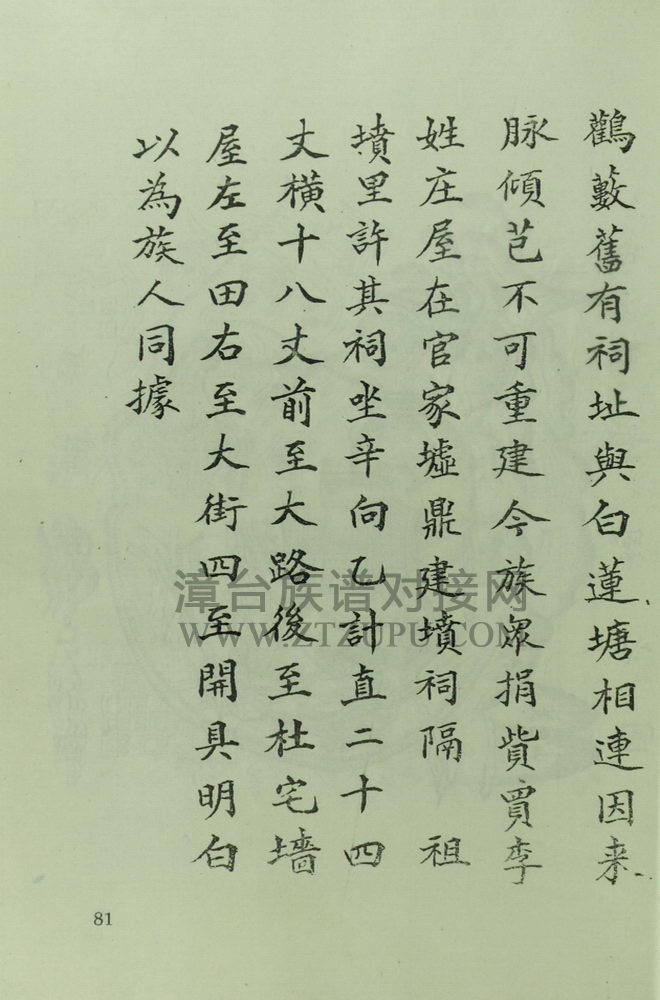 鸛藪舊有祠址與白蓮塘相連因来
脉傾芭不可重建今族眾捐貲買李
姓庄屋在官家墟鼎建墳祠隔　祖
墳里許其祠坐辛向乙計直二十四
丈橫十八丈前至大路後至杜宅墻
屋左至田右至大街四至開具明白
以為族人同據
漳台族谱对接网
WWW.ZTZUPU.COM
81